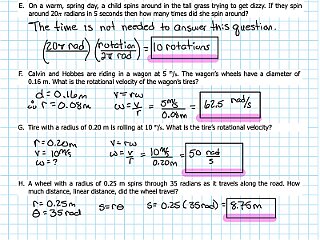 E. On a warm, spring day, a child spins around in the tall grass trying to get dizzy. If they spin
around 20π radians in 5 seconds then how many times did she spin around?
The time is not needed to answer this question.
(20π rad / 1)(rotation / 2π rad) = 10 rotations
F. Calvin and Hobbes are riding in a wagon at 5 m/s. The wagon's wheels have a diameter of
0.16 m. What is the rotational velocity of the wagon's tires?
d = 0.16m v = rω
∴ r = 0.08m ω = v/r = 5 m/s / 0.08m = 62.5 rad/s
G. Tire with a radius of 0.20 m is rolling at 10 m/s. What is the tire's rotational velocity?
r = 0.20m v = rω
v = 10 m/s ω = v/r = 10 m/s / 0.20m = 50 rad/s
ω = ?
H. A wheel with a radius of 0.25 m spins through 35 radians as it travels along the road. How
much distance, linear distance, did the wheel travel?
r = 0.25m s = rθ s = 0.25(35rad) = 8.75m
θ = 35rad